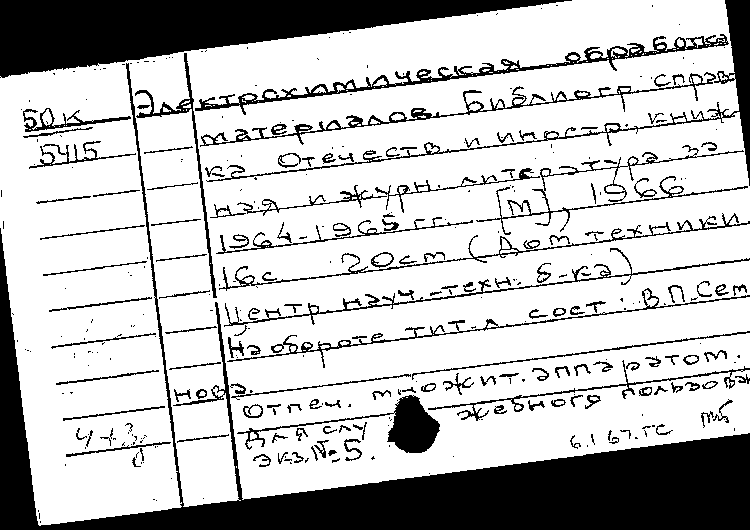 50к
5415
Электрохимическая обработка
материалов. Библиогр. справ-
ка. Отечеств. и иностр., книж-
ная и журн. литература за
1964-1965 гг. [М], 1966.
16с. 20см (Дом техники
Центр. науч.-техн. б-ка)
На обороте тит. л. сост: В.П.Сем
нова.
Отпеч. множит. аппаратом.
Для слу жебного пользован
Экз. №5.
4+3
6.1.67.ГС